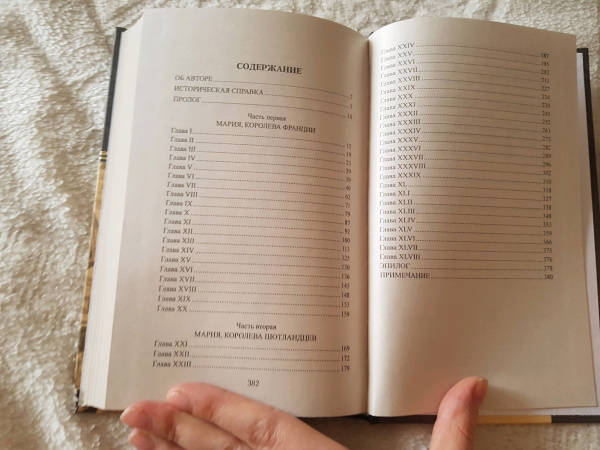 СОДЕРЖАНИЕ
ОБ АВТОРЕ
ИСТОРИЧЕСКАЯ СПРАВКА
ПРОЛОГ
Часть первая
МАРИЯ, КОРОЛЕВА ФРАНЦИИ
Глава I
Глава II
Глава III
Глава IV
Глава V
Глава VI
Глава VII
Глава VIII
Глава IX
Глава X
Глава XI
Глава XII
Глава XIII 100
Глава XIV 113
Глава XV 125
Глава XVI 130
Глава XVII 145
Глава XVIII 148
Глава XIX 153
Глава XX 159
Часть вторая
МАРИЯ, КОРОЛЕВА ШОТЛАНДЦЕВ
Глава XXI 169
Глава XXII 172
Глава XXIII 179
382
Глава XXIV 187
Глава XXV
Глава XXVI
Глава XXVII
Глава XXVIII
Глава XXIX
Глава XXX
Глава XXXI
Глава XXXII
Глава XXXIII
Глава XXXIV
Глава XXXV
Глава XXXVI
Глава XXXVII
Глава XXXVIII
Глава XXXIX
Глава XL
Глава XLI
Глава XLII
Глава XLIII
Глава XLIV
Глава XLV
Глава XLVI
Глава XLVII
Глава XLVIII
ЭПИЛОГ
ПРИМЕЧАНИЕ